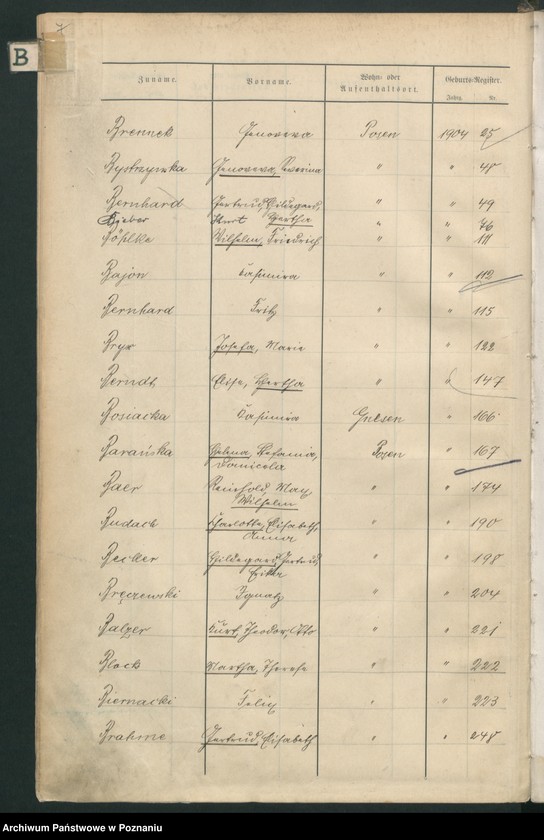 B
Zuname. Vorname. Wohn- oder Aufenthaltsort. Geburts-Register.
Jahrg. Nr.
Brennek Genoveva Posen 1904 25
Bystrzynska Genoveva, Severina " " 48
Bernhard Gertrud, Hildegard, " " 49
Bieber Kurt " " 76
Böhlke Wilhelm, Friedrich " " 111
Bajon Casimira " " 112
Bernhard Fritz " " 115
Bryx Josefa, Marie " " 122
Berndt Else, Hertha " " 147
Bosiacka Casimira Gnesen " 166
Barańska Helena, Stefania, Posen " 167
Danicela
Baer Reinhold Max " " 174
Wilhelm
Budach Charlotte, Elisabeth, " " 190
Anna
Becker Hildegard, Gertrud " " 198
Erika
Bręczewski Ignatz " " 204
Balzer Kurt, Theodor, Otto " " 221
Block Martha, Therese " " 222
Biernacki Felix " " 223
Brahme Gertrud, Elisabeth " " 248
Archiwum Państwowe w Poznaniu